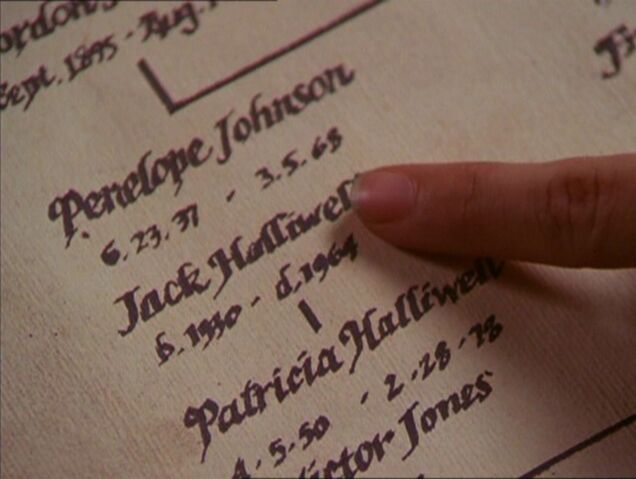 Sept. 1895 - Aug.
Penelope Johnson
6.23.37 - 3.5.68
Jack Halliwell
b. 1930 - d. 1964
Patricia Halliwell
4.5.50 - 2-28-78
Jones